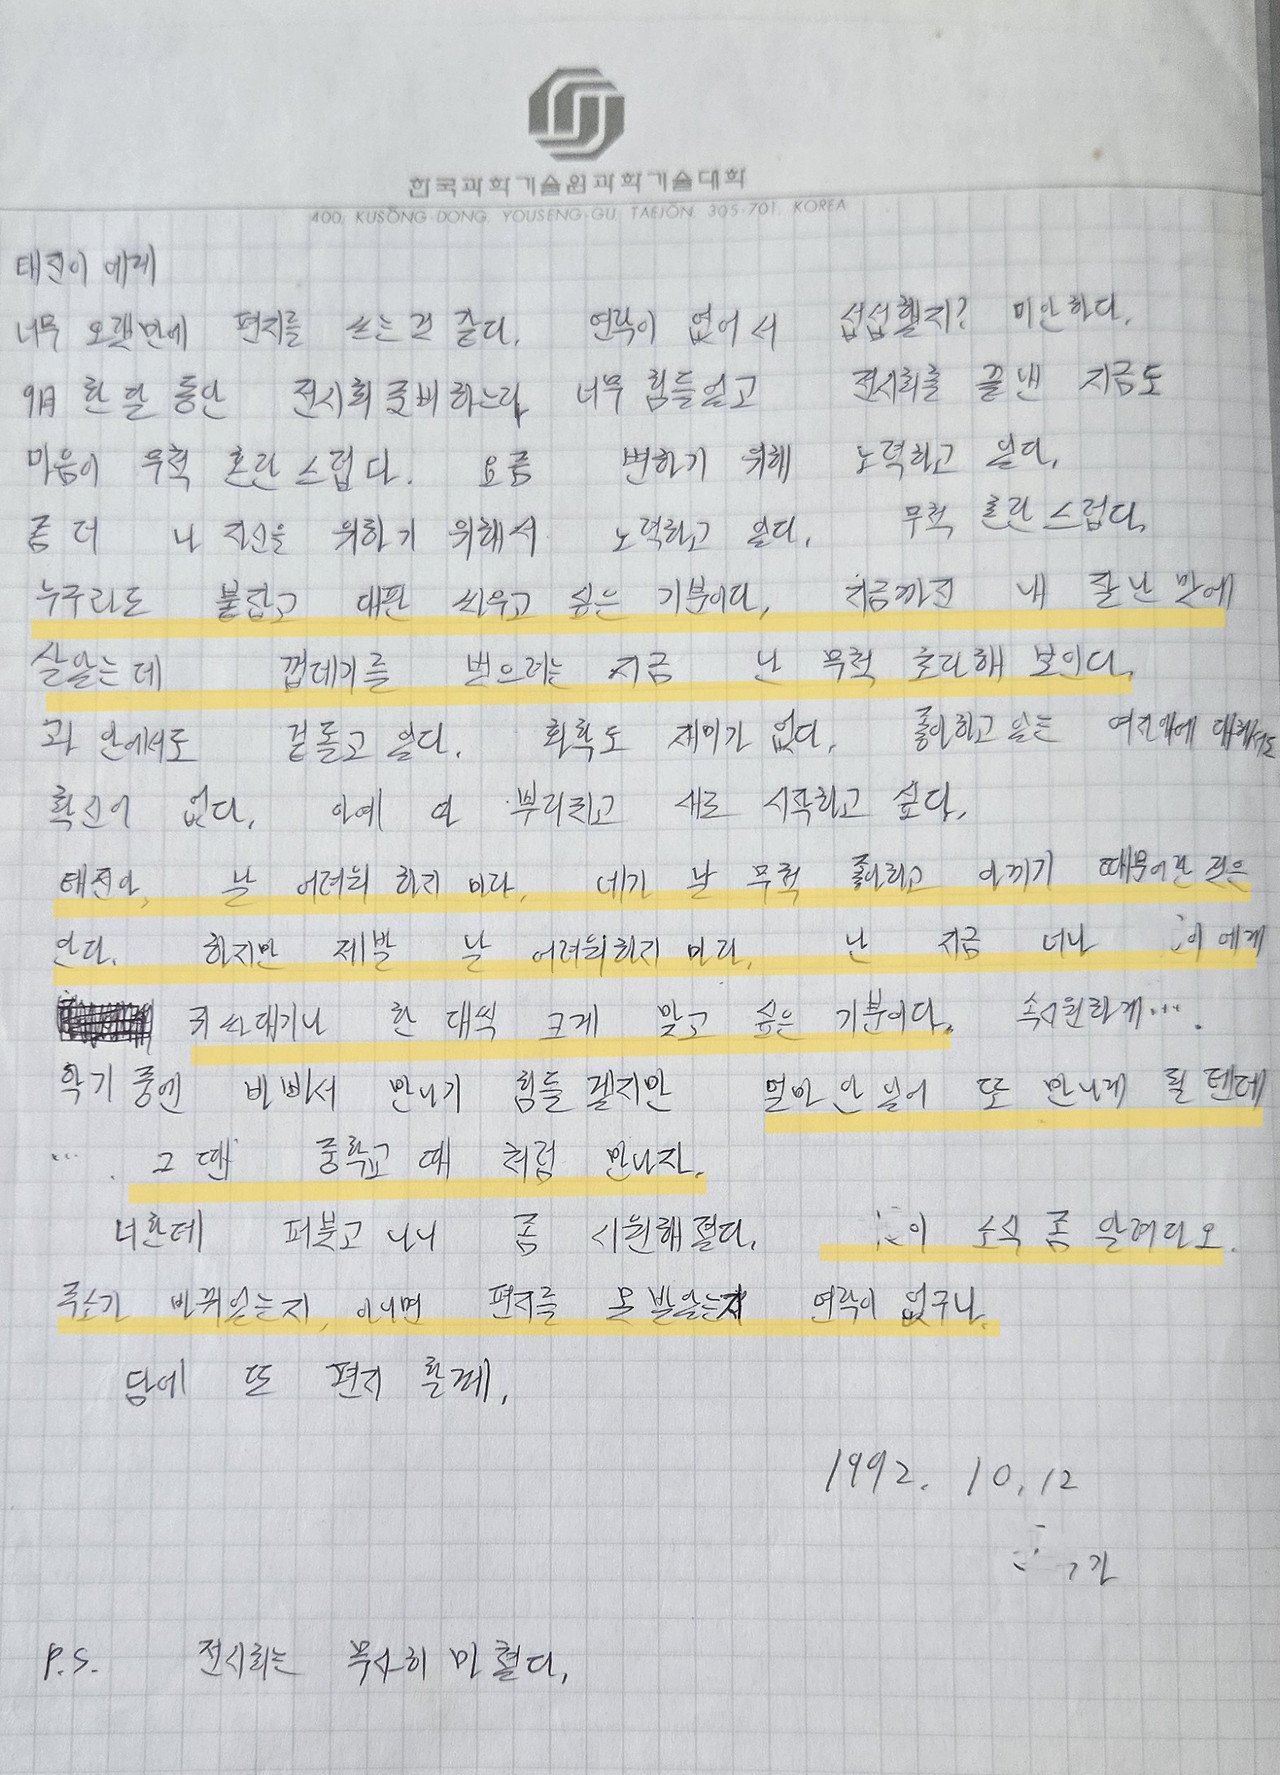 한국과학기술원과학기술대학
400, KUSŎNG-DONG, YOUSENG-GU, TAEJŎN, 305-701, KOREA
태진이 에게
너무 오랜만에 편지를 쓰는 것 같다. 연락이 없어서 섭섭했지? 미안하다.
9月 한 달 동안 전시회 준비하느라 너무 힘들었고 전시회를 끝낸 지금도
마음이 무척 혼란스럽다. 요즘 변하기 위해 노력하고 있다.
좀 더 나 자신을 위하기 위해서 노력하고 있다. 무척 혼란스럽다.
누구라도 붙잡고 대판 싸우고 싶은 기분이다. 지금까진 내 잘난 맛에
살았는데 껍데기를 벗으려는 지금 난 무척 초라해 보인다.
과 안에서도 겉돌고 있다. 화학도 재미가 없다. 좋아하고 있는 여자애에 대해서도
확신이 없다. 아예 다 뿌리치고 새로 시작하고 싶다.
태진아, 날 어려워 하지 마라. 네가 날 무척 좋아하고 아끼기 때문이란 것은
안다. 하지만 제발 날 어려워하지 마라. 난 지금 너나 이에게
귀싸대기나 한 대씩 크게 맞고 싶은 기분이다. 속시원하게….
학기 중엔 바빠서 만나기 힘들겠지만 얼마 안 있어 또 만나게 될 텐데
…. 그 땐 중학교 때 처럼 만나자.
너한테 퍼붓고 나니 좀 시원해졌다. 이 소식 좀 알려다오.
주소가 바뀌었는지, 아니면 편지를 못 받았는지 연락이 없구나.
담에 또 편지 할께.
1992. 10. 12
P.S. 전시회는 무사히 마쳤다.